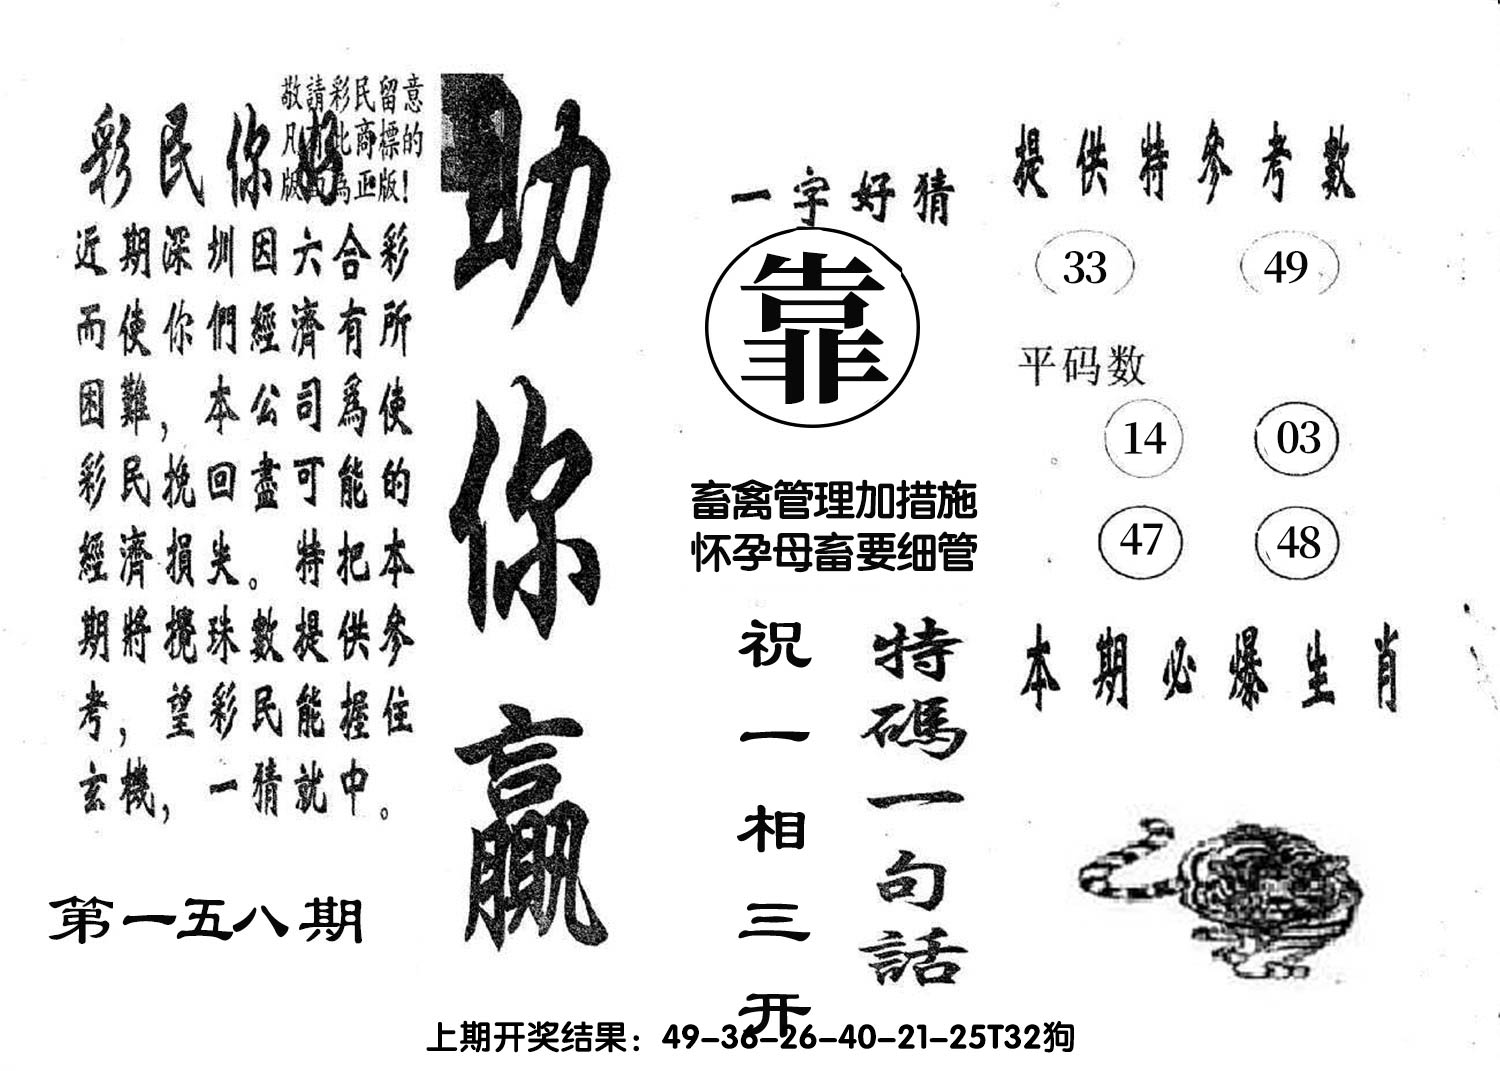 敬請彩民留意
凡有此商標的
版面為正版!
彩民你好
近期深圳因六合彩
而使你們經濟有所
困難，本公司爲使
彩民挽回盡可能的
經濟損失。特把本
期將攪珠數提供參
考，望彩民能握住
玄機，一猜就中。
第一五八期
助你贏
一字好猜
靠
畜禽管理加措施
怀孕母畜要细管
特碼一句話
祝一相三开
提供特參考數
33 49
平码数
14 03
47 48
本期必爆生肖
上期开奖结果：49-36-26-40-21-25T32狗